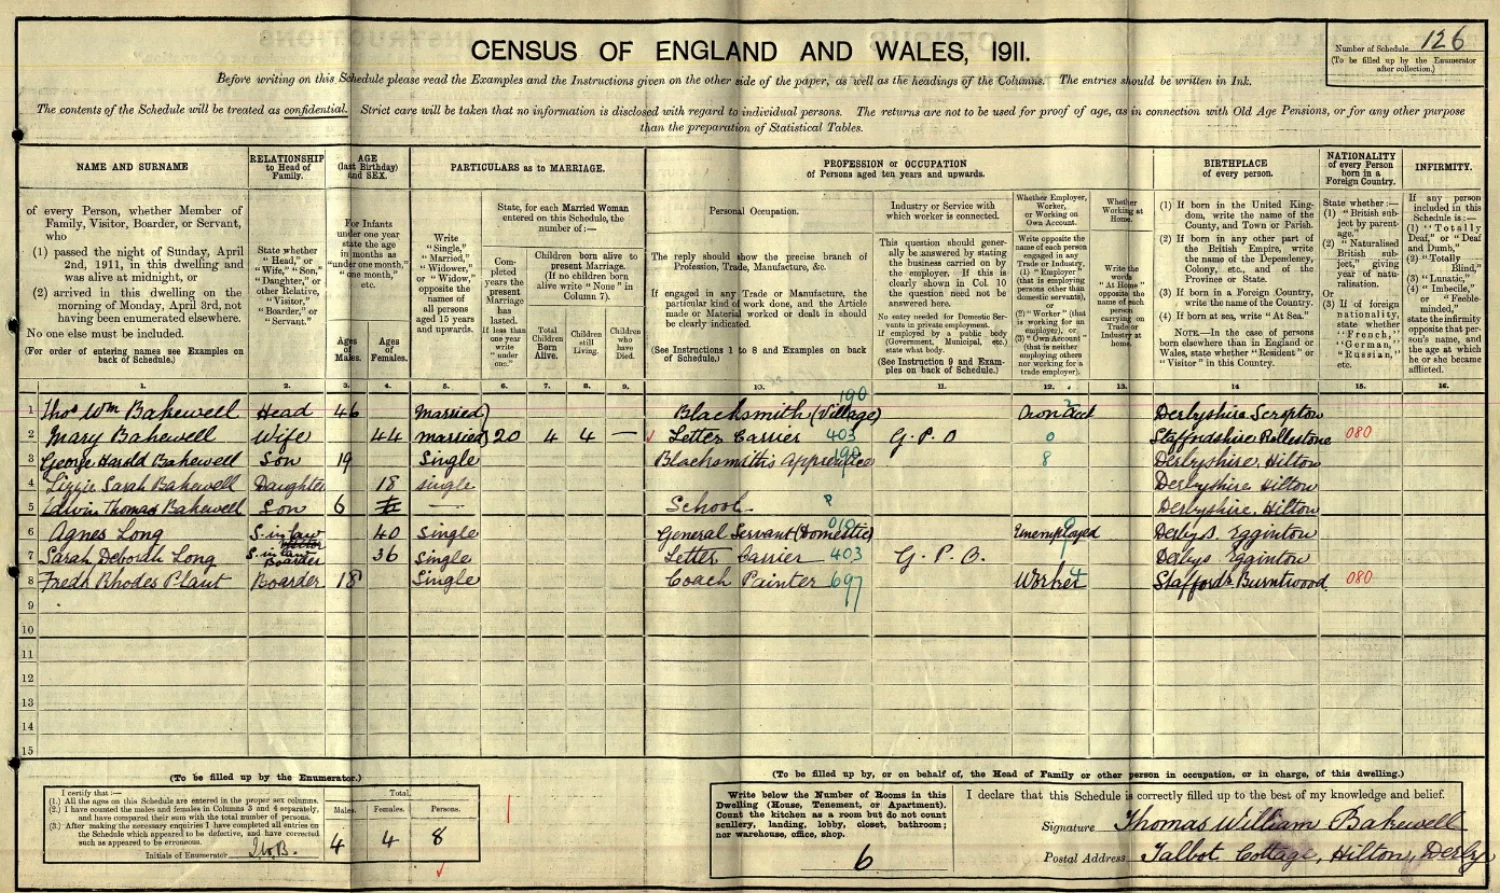 CENSUS OF ENGLAND AND WALES, 1911.
Number of Schedule 126
(To be filled up by the Enumerator after collection.)
Before writing on this Schedule please read the Examples and the Instructions given on the other side of the paper, as well as the headings of the Columns. The entries should be written in Ink.
The contents of the Schedule will be treated as confidential. Strict care will be taken that no information is disclosed with regard to individual persons. The returns are not to be used for proof of age, as in connection with Old Age Pensions, or for any other purpose
than the preparation of Statistical Tables.
NAME AND SURNAME
of every Person, whether Member of
Family, Visitor, Boarder, or Servant,
who
(1) passed the night of Sunday, April
2nd, 1911, in this dwelling and
was alive at midnight, or
(2) arrived in this dwelling on the
morning of Monday, April 3rd, not
having been enumerated elsewhere.
No one else must be included.
(For order of entering names see Examples on
back of Schedule.)
RELATIONSHIP
to Head of
Family.
State whether
"Head," or
"Wife," "Son,"
"Daughter," or
other Relative,
"Visitor,"
"Boarder," or
"Servant."
AGE
(last Birthday)
and SEX.
For Infants
under one year
state the age
in months as
"under one month,"
"one month,"
etc.
Ages of Males.
Ages of Females.
PARTICULARS as to MARRIAGE.
Write
"Single,"
"Married,"
"Widower,"
or "Widow,"
opposite the
names of
all persons
aged 15 years
and upwards.
State, for each Married Woman
entered on this Schedule, the
number of:—
Completed years the present Marriage has lasted.
If less than one year write "under one."
Children born alive to
present Marriage.
(If no children born
alive write "None" in
Column 7).
Total Children Born Alive.
Children still Living.
Children who have Died.
PROFESSION or OCCUPATION
of Persons aged ten years and upwards.
Personal Occupation.
The reply should show the precise branch of
Profession, Trade, Manufacture, &c.
If engaged in any Trade or Manufacture, the
particular kind of work done, and the Article
made or Material worked or dealt in should
be clearly indicated.
(See Instructions 1 to 8 and Examples on back
of Schedule.)
Industry or Service with
which worker is connected.
This question should generally be answered by stating
the business carried on by
the employer. If this is
clearly shown in Col. 10
the question need not be
answered here.
No entry needed for Domestic Servants in private employment.
If employed by a public body
(Government, Municipal, etc.)
state what body.
(See Instruction 9 and Examples on back of Schedule.)
Whether Employer,
Worker,
or Working on
Own Account.
Write opposite the
name of each person
engaged in any
Trade or Industry,
(1) "Employer"
(that is employing
persons other than
domestic servants),
or
(2) "Worker" (that
is working for an
employer), or
(3) "Own Account"
(that is neither
employing others
nor working for a
trade employer).
Whether Working at Home.
Write the
words
"At Home"
opposite the
name of each
person
carrying on
Trade or
Industry at
home.
BIRTHPLACE
of every person.
(1) If born in the United Kingdom, write the name of the
County, and Town or Parish.
(2) If born in any other part of
the British Empire, write
the name of the Dependency,
Colony, etc., and of the
Province or State.
(3) If born in a Foreign Country,
write the name of the Country.
(4) If born at sea, write "At Sea."
NOTE.—In the case of persons
born elsewhere than in England or
Wales, state whether "Resident" or
"Visitor" in this Country.
NATIONALITY
of every Person
born in a
Foreign Country.
State whether:—
(1) "British subject by parentage."
(2) "Naturalised
British subject," giving
year of naturalisation.
Or
(3) If of foreign
nationality,
state whether
"French,"
"German,"
"Russian,"
etc.
INFIRMITY.
If any person
included in this
Schedule is:—
(1) "Totally
Deaf," or "Deaf
and Dumb,"
(2) "Totally
Blind,"
(3) "Lunatic,"
(4) "Imbecile,"
or "Feeble-
minded,"
state the infirmity
opposite that person's name, and
the age at which
he or she became
afflicted.
1. 2. 3. 4. 5. 6. 7. 8. 9. 10. 11. 12. 13. 14 15. 16.
1 Thos Wm Bakewell Head 46 Married Blacksmith (Village) 190 Own Acct Derbyshire Scropton
2 Mary Bakewell Wife 44 Married 20 4 4 — Letter Carrier 403 G.P.O 0 Staffordshire Rollestone 080
3 George Harold Bakewell Son 19 Single Blacksmith's Apprentice 190 8 Derbyshire, Hilton
4 Lizzie Sarah Bakewell Daughter 18 Single Derbyshire Hilton
5 Edwin Thomas Bakewell Son 6 — School Derbyshire, Hilton
6 Agnes Long S. in law 40 Single General Servant (Domestic) 010 Unemployed 9 Derbys. Egginton
7 Sarah Deborah Long S. in law Boarder 36 Single Letter Carrier 403 G.P.O. Derbys Egginton
8 Fredk Rhodes Plant Boarder 18 Single Coach Painter 697 Worker Staffords Burntwood 080
9
10
11
12
13
14
15
(To be filled up by the Enumerator.)
I certify that:—
(1.) All the ages on this Schedule are entered in the proper sex columns.
(2.) I have counted the males and females in Columns 3 and 4 separately,
and have compared their sum with the total number of persons.
(3.) After making the necessary enquiries I have completed all entries on
the Schedule which appeared to be defective, and have corrected
such as appeared to be erroneous.
Initials of Enumerator
Total.
Males. Females. Persons.
4 4 8
(To be filled up by, or on behalf of, the Head of Family or other person in occupation, or in charge, of this dwelling.)
Write below the Number of Rooms in this
Dwelling (House, Tenement, or Apartment).
Count the kitchen as a room but do not count
scullery, landing, lobby, closet, bathroom;
nor warehouse, office, shop.
6
I declare that this Schedule is correctly filled up to the best of my knowledge and belief.
Signature Thomas William Bakewell
Postal Address Talbot Cottage, Hilton, Derby